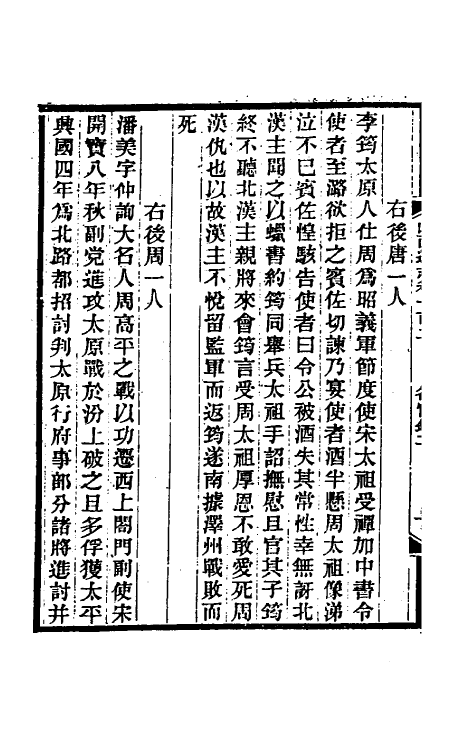 右後唐一人
李筠太原人仕周爲昭義軍節度使宋太祖受禪加中書令
使者至潞欲拒之賓佐切諫乃宴使者酒半懸周太祖像涕
泣不已賓佐惶駭告使者曰令公被酒失其常性幸無訝北
漢主聞之以蠟書約筠同舉兵太祖手詔撫慰且官其子筠
終不聽北漢主親將來會筠言受周太祖厚恩不敢愛死周
漢仇也以故漢主不悅留監軍而返筠遂南據澤州戰敗而
死
右後周一人
潘美字仲詢大名人周高平之戰以功遷西上閤門副使宋
開寶八年秋副党進攻太原戰於汾上破之且多俘獲太平
興國四年爲北路都招討判太原行府事部分諸將進討并